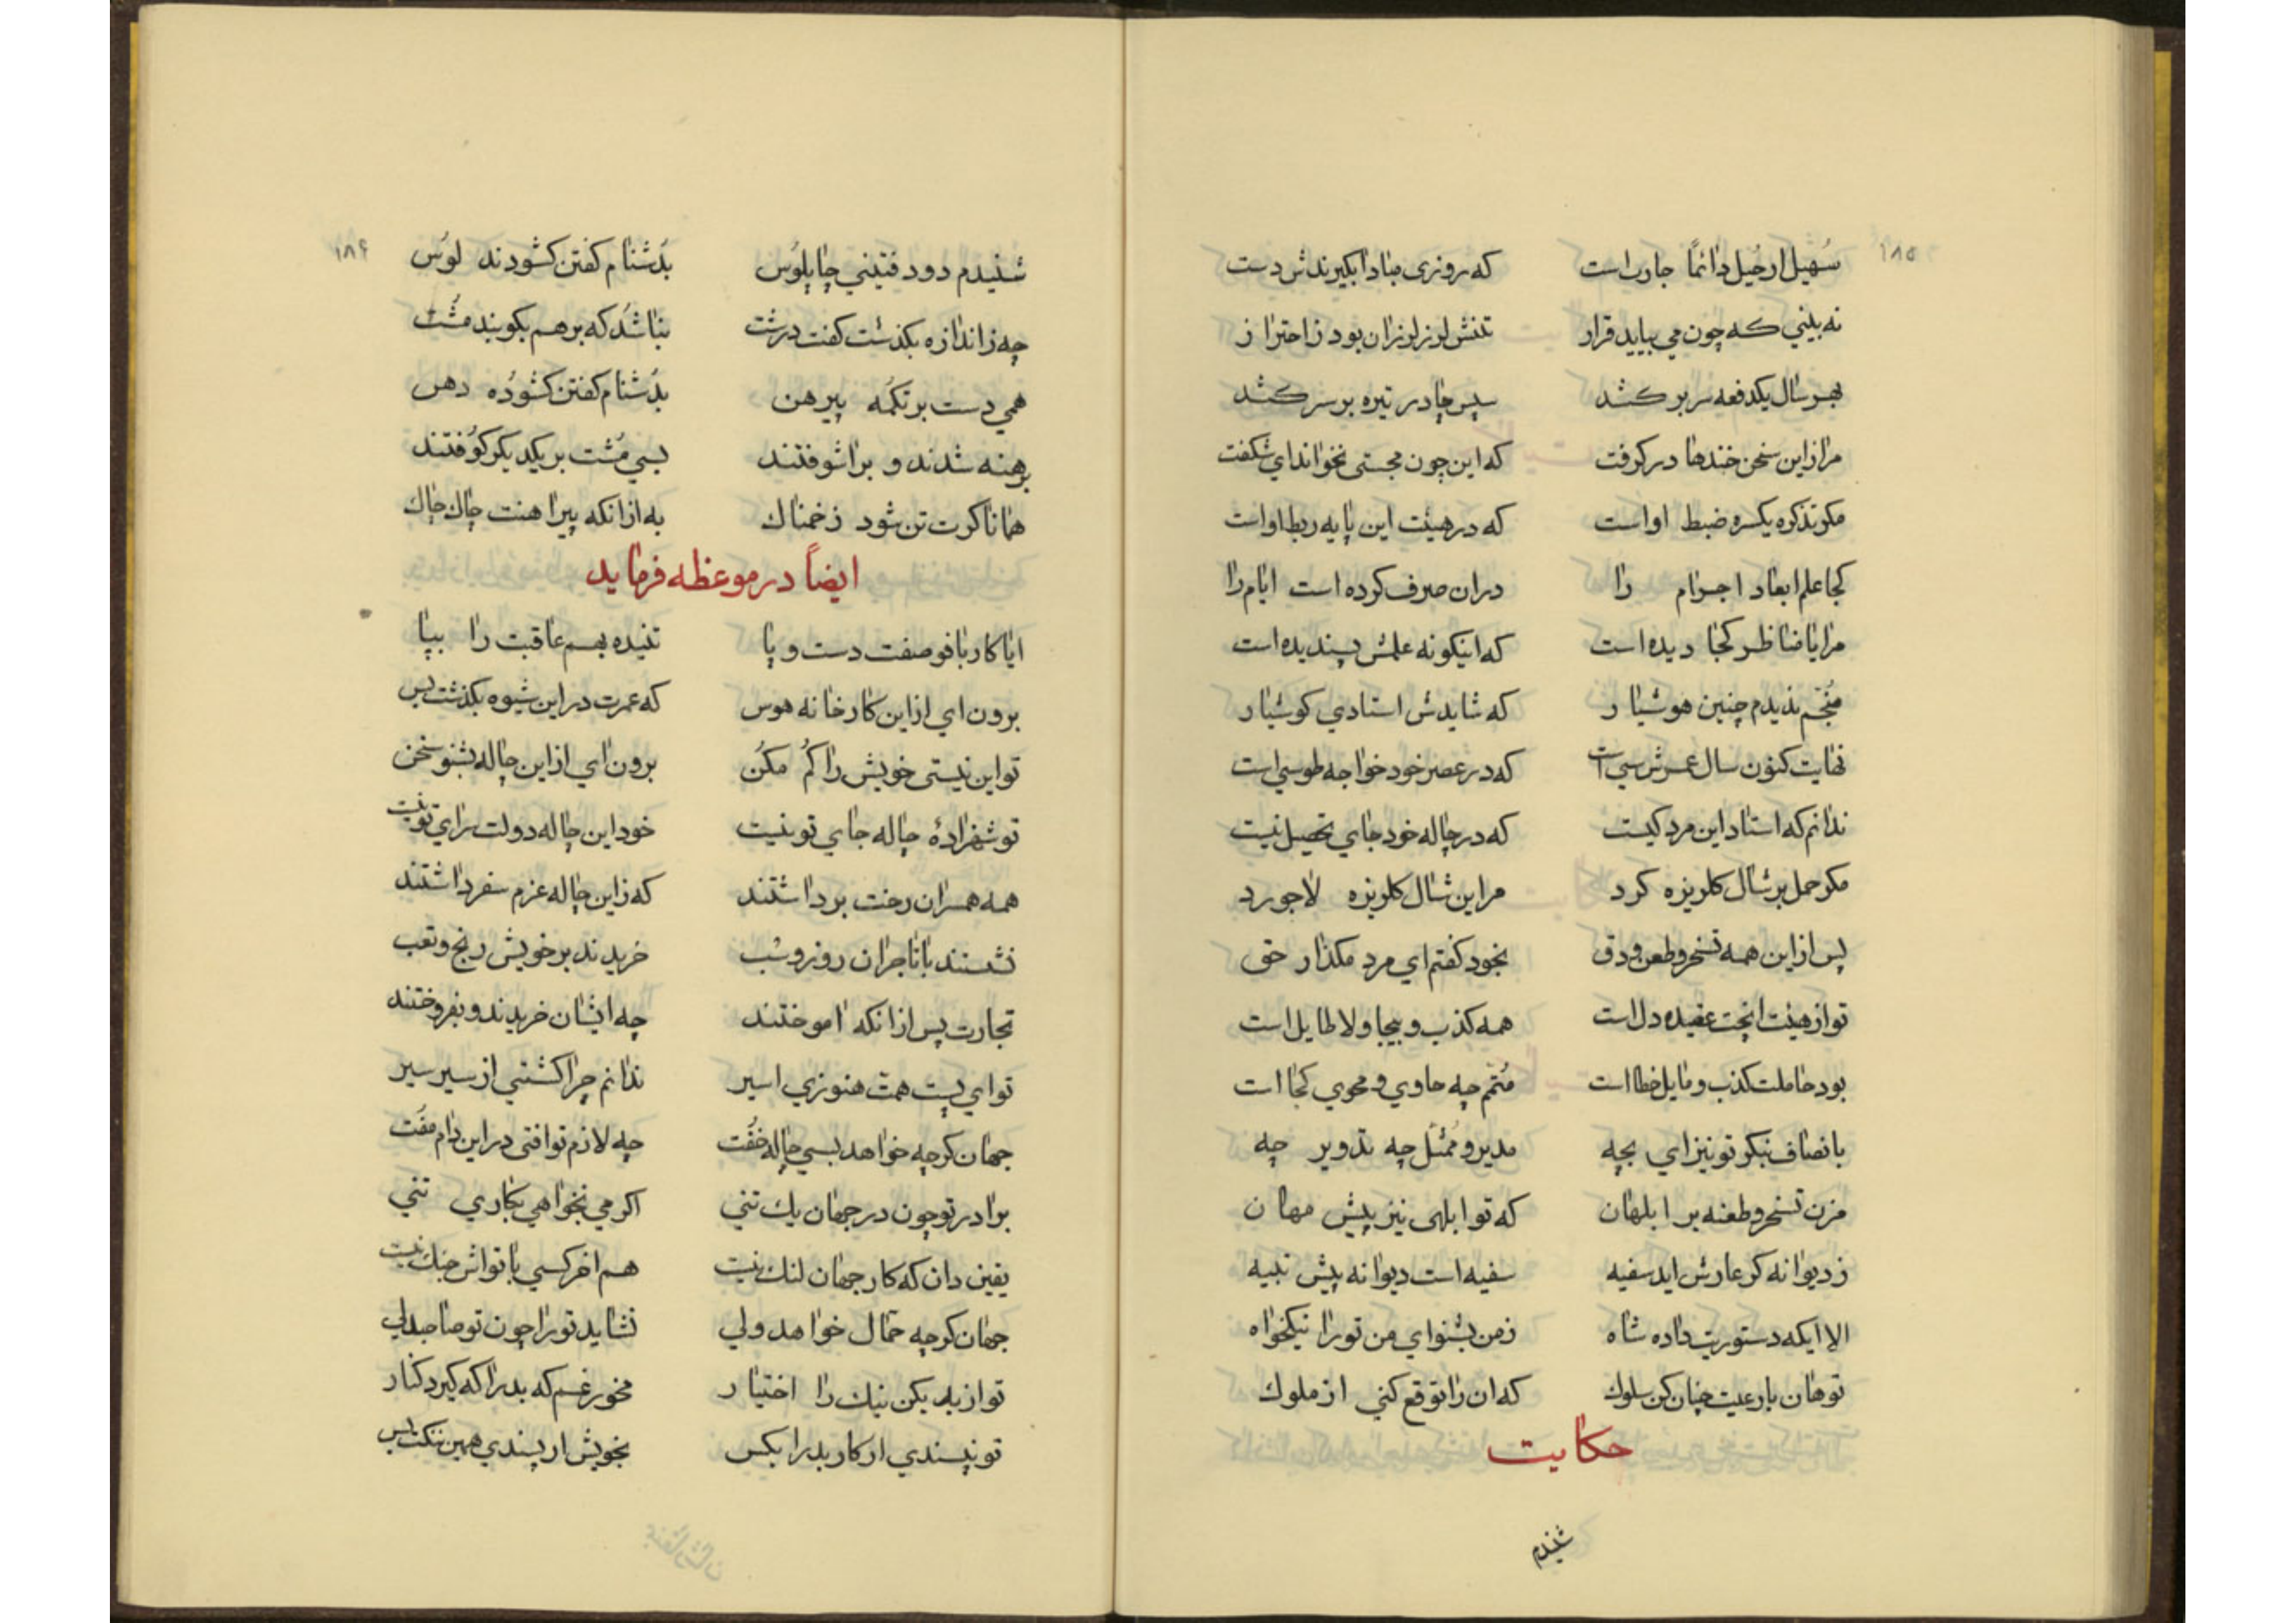 ۱۸۵
سُهیل ارحیل دائماً جاریست که روزی مبادا بگیرندش دست
نه بینی که چون می بیاید قرار تنش لرز لرزان بود ز احتراز
بهر سال یکدفعه سر بر کشد سپس چادر تیره بر سر کشد
مرا زاین سخن خندها در گرفت که این چون مجستی نخواند ای شگفت
مکر تذکره یکسره ضبط اواست که در هیئت این پایه ربط اواست
کجا علم ابعاد اجرام را دران صرف کرده است ایام را
مرایا مناظر کجا دیده است که اینکونه علمش پسندیده است
مُنجّم ندیدم چنین هوشیار که شایدش استادی کوشیار
نهایت کنون سال عمرش سی است که در عصر خود خواجه طوسی است
ندانم که استاد این مرد کیست که در چاله خود جای تحصیل نیست
مکر حمل بر شال کلریزه کرد مر این شال کلریزه لاجورد
پس از این همه تسخر و طعن و دق بخود کفتم ای مرد مکذار حق
تو از هیئت انچت عقیده دل است همه کذب و بیجا و لاطایل است
بود حاملت کذب و مایل خطا است مُتمّم چه حاوی و محوی کجا است
بانصاف بنکر تو نیز ای بچه مدیر و مُمثّل چه تدویر چه
مزن تسخر و طعنه بر ابلهان که تو ابلهی نیز پیش مهان
ز دیوانه کر عارش اید سفیه سفیه است دیوانه پیش نبیه
الا ایکه دستوریت داده شاه ز من بشنو ای من تو را نیکخواه
تو هان با رعیت چنان کن سلوک که ان را توقع کنی از ملوک
حکایت
شنیدم
۱۸۶
شنیدم دو دفتینی چاپلوس بدُشنام کفتن کشودند لوس
چه ز اندازه بکذشت کفت درشت بناشد که بر هم بکوبند مشت
همی دست بر تکمه پیرهن بدُشنام کفتن کشوده دهن
برهنه شدند و براشوفتند بسی مُشت بر یکدیکر کوفتند
همانا کرت تن شود زخمناک به از انکه پیراهنت چاک چاک
ایضاً در موعظه فرماید
ایا کار بافو صفت دست و پا تنیده بهم عاقبت را بپا
برون ای از این کارخانه هوس که عمرت در این شیوه بکذشت بس
تو این نیستی خویش را کُم مکُن برون ای از این چاله بشنو سخن
تو شهزادهٔ چاله جای تو نیست خود این چاله دولت سرای تو نیست
همه همسران رخت برداشتند که ز این چاله عزم سفر داشتند
نشستند با تاجران روز و شب خریدند بر خویش رنج و تعب
تجارت پس از انکه اموختند چه ایشان خریدند و بفروختند
تو ای پست همت هنوزی اسیر ندانم چرا کشتی از سیر سیر
جهان کرچه خواهد بسی چاله خُفت چه لازم تو افتی در این دام مفُت
برادر تو چون در جهان یک تنی اکر می نخواهی بکاری تنی
یقین دان که کار جهان لنک نیست هم اخر کسی با تواش جنک نیست
جهان کرچه حمّال خواهد ولی نشاید تو را چون تو صاحبدلی
تو از بد بکن نیک را اختیار مخور غم که بد را که کیرد کنار
تو نپسندی ار کار بد را بکس بخویش ار پسندی همین ننکت بس